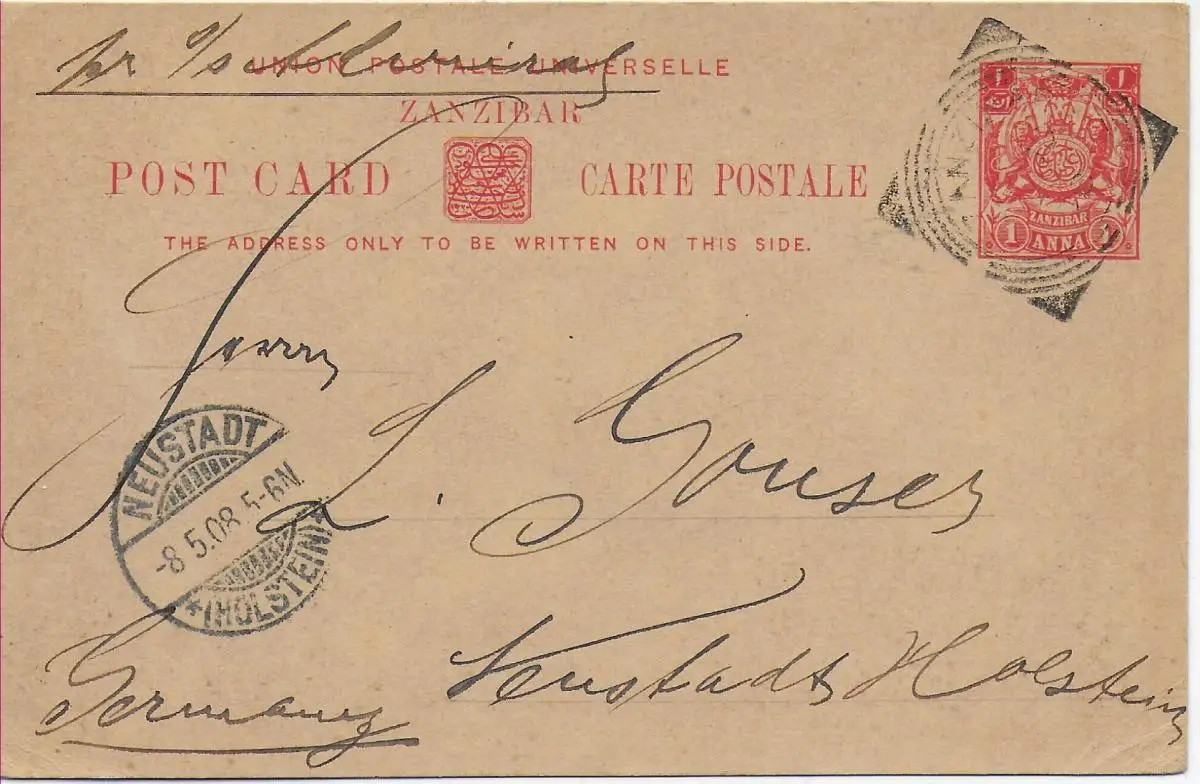 UNION POSTALE UNIVERSELLE
ZANZIBAR
POST CARD CARTE POSTALE
THE ADDRESS ONLY TO BE WRITTEN ON THIS SIDE.
1 1
ZANZIBAR
1 ANNA 1
Herrn
L.
Neustadt Holstein
Germany
NEUSTADT
-8.5.08.5-6N.
*(HOLSTEIN)*